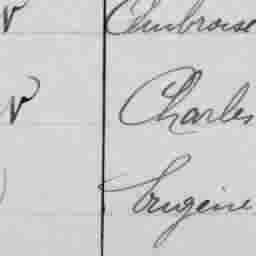 V Ambroise
V Charles
Eugène